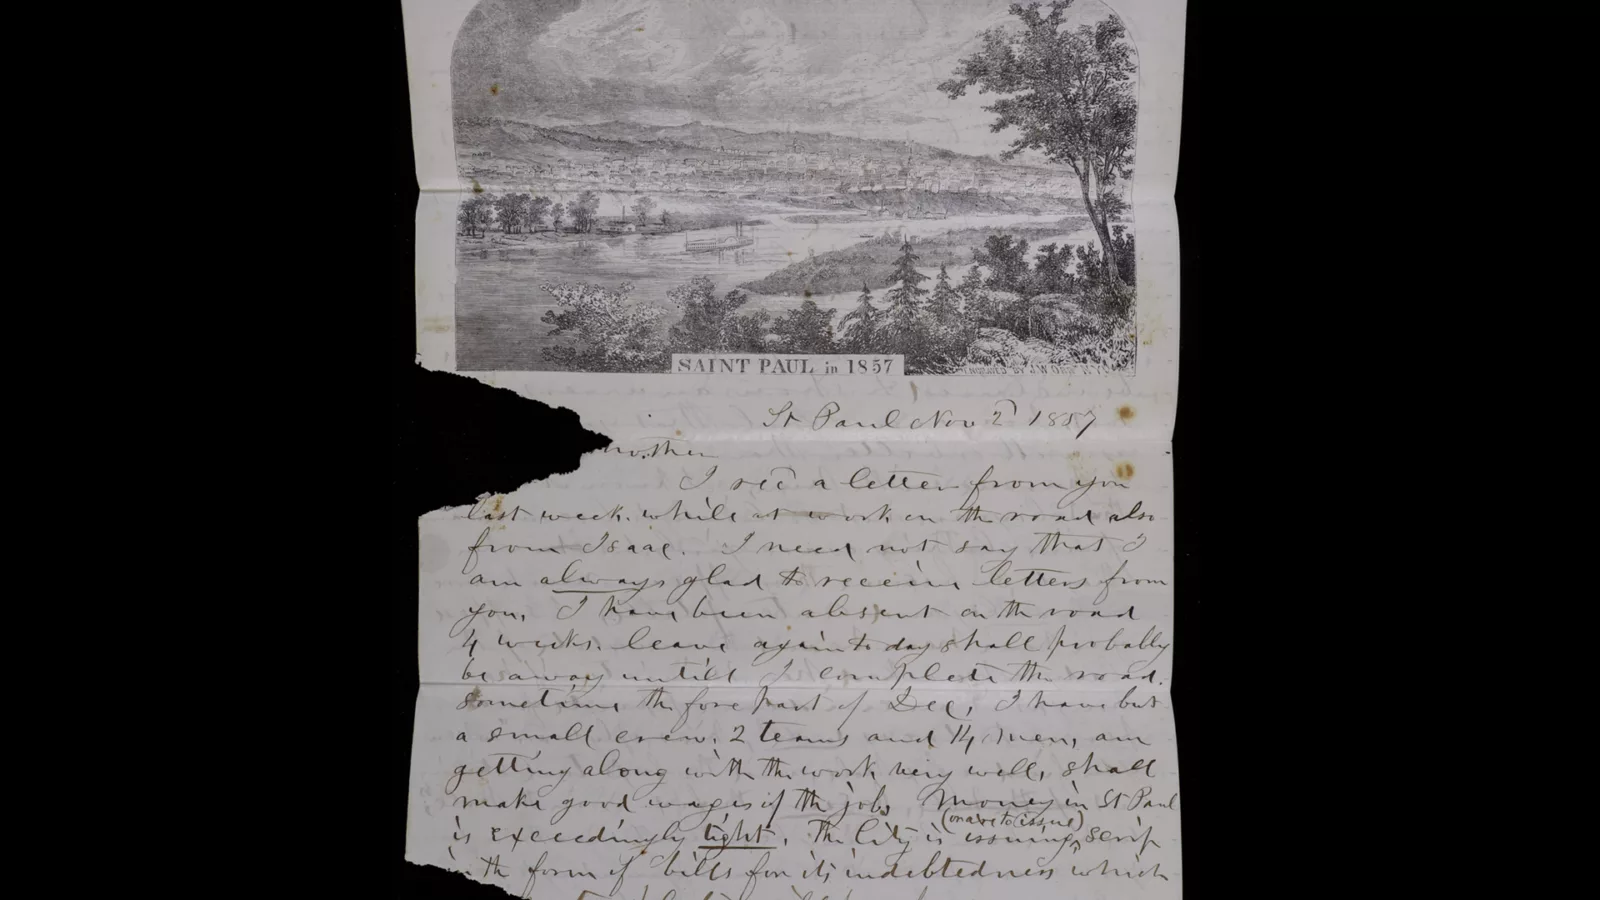 SAINT PAUL in 1857
St Paul Nov 2d 1857
mother
I recd a letter from you
last week while at work on the road also
from Isaac. I need not say that I
am always glad to receive letters from
you. I have been absent on the road
4 weeks. leave again to day shall probably
be away untill I complete the road.
sometime the fore part of Dec. I have but
a small crew. 2 teams and 14 men, am
getting along with the work very well, shall
make good wages of the job. Money in St Paul
(or are to issue)
is exceedingly tight. The City is issuing scrip
in the form of bills for its indebtedness which